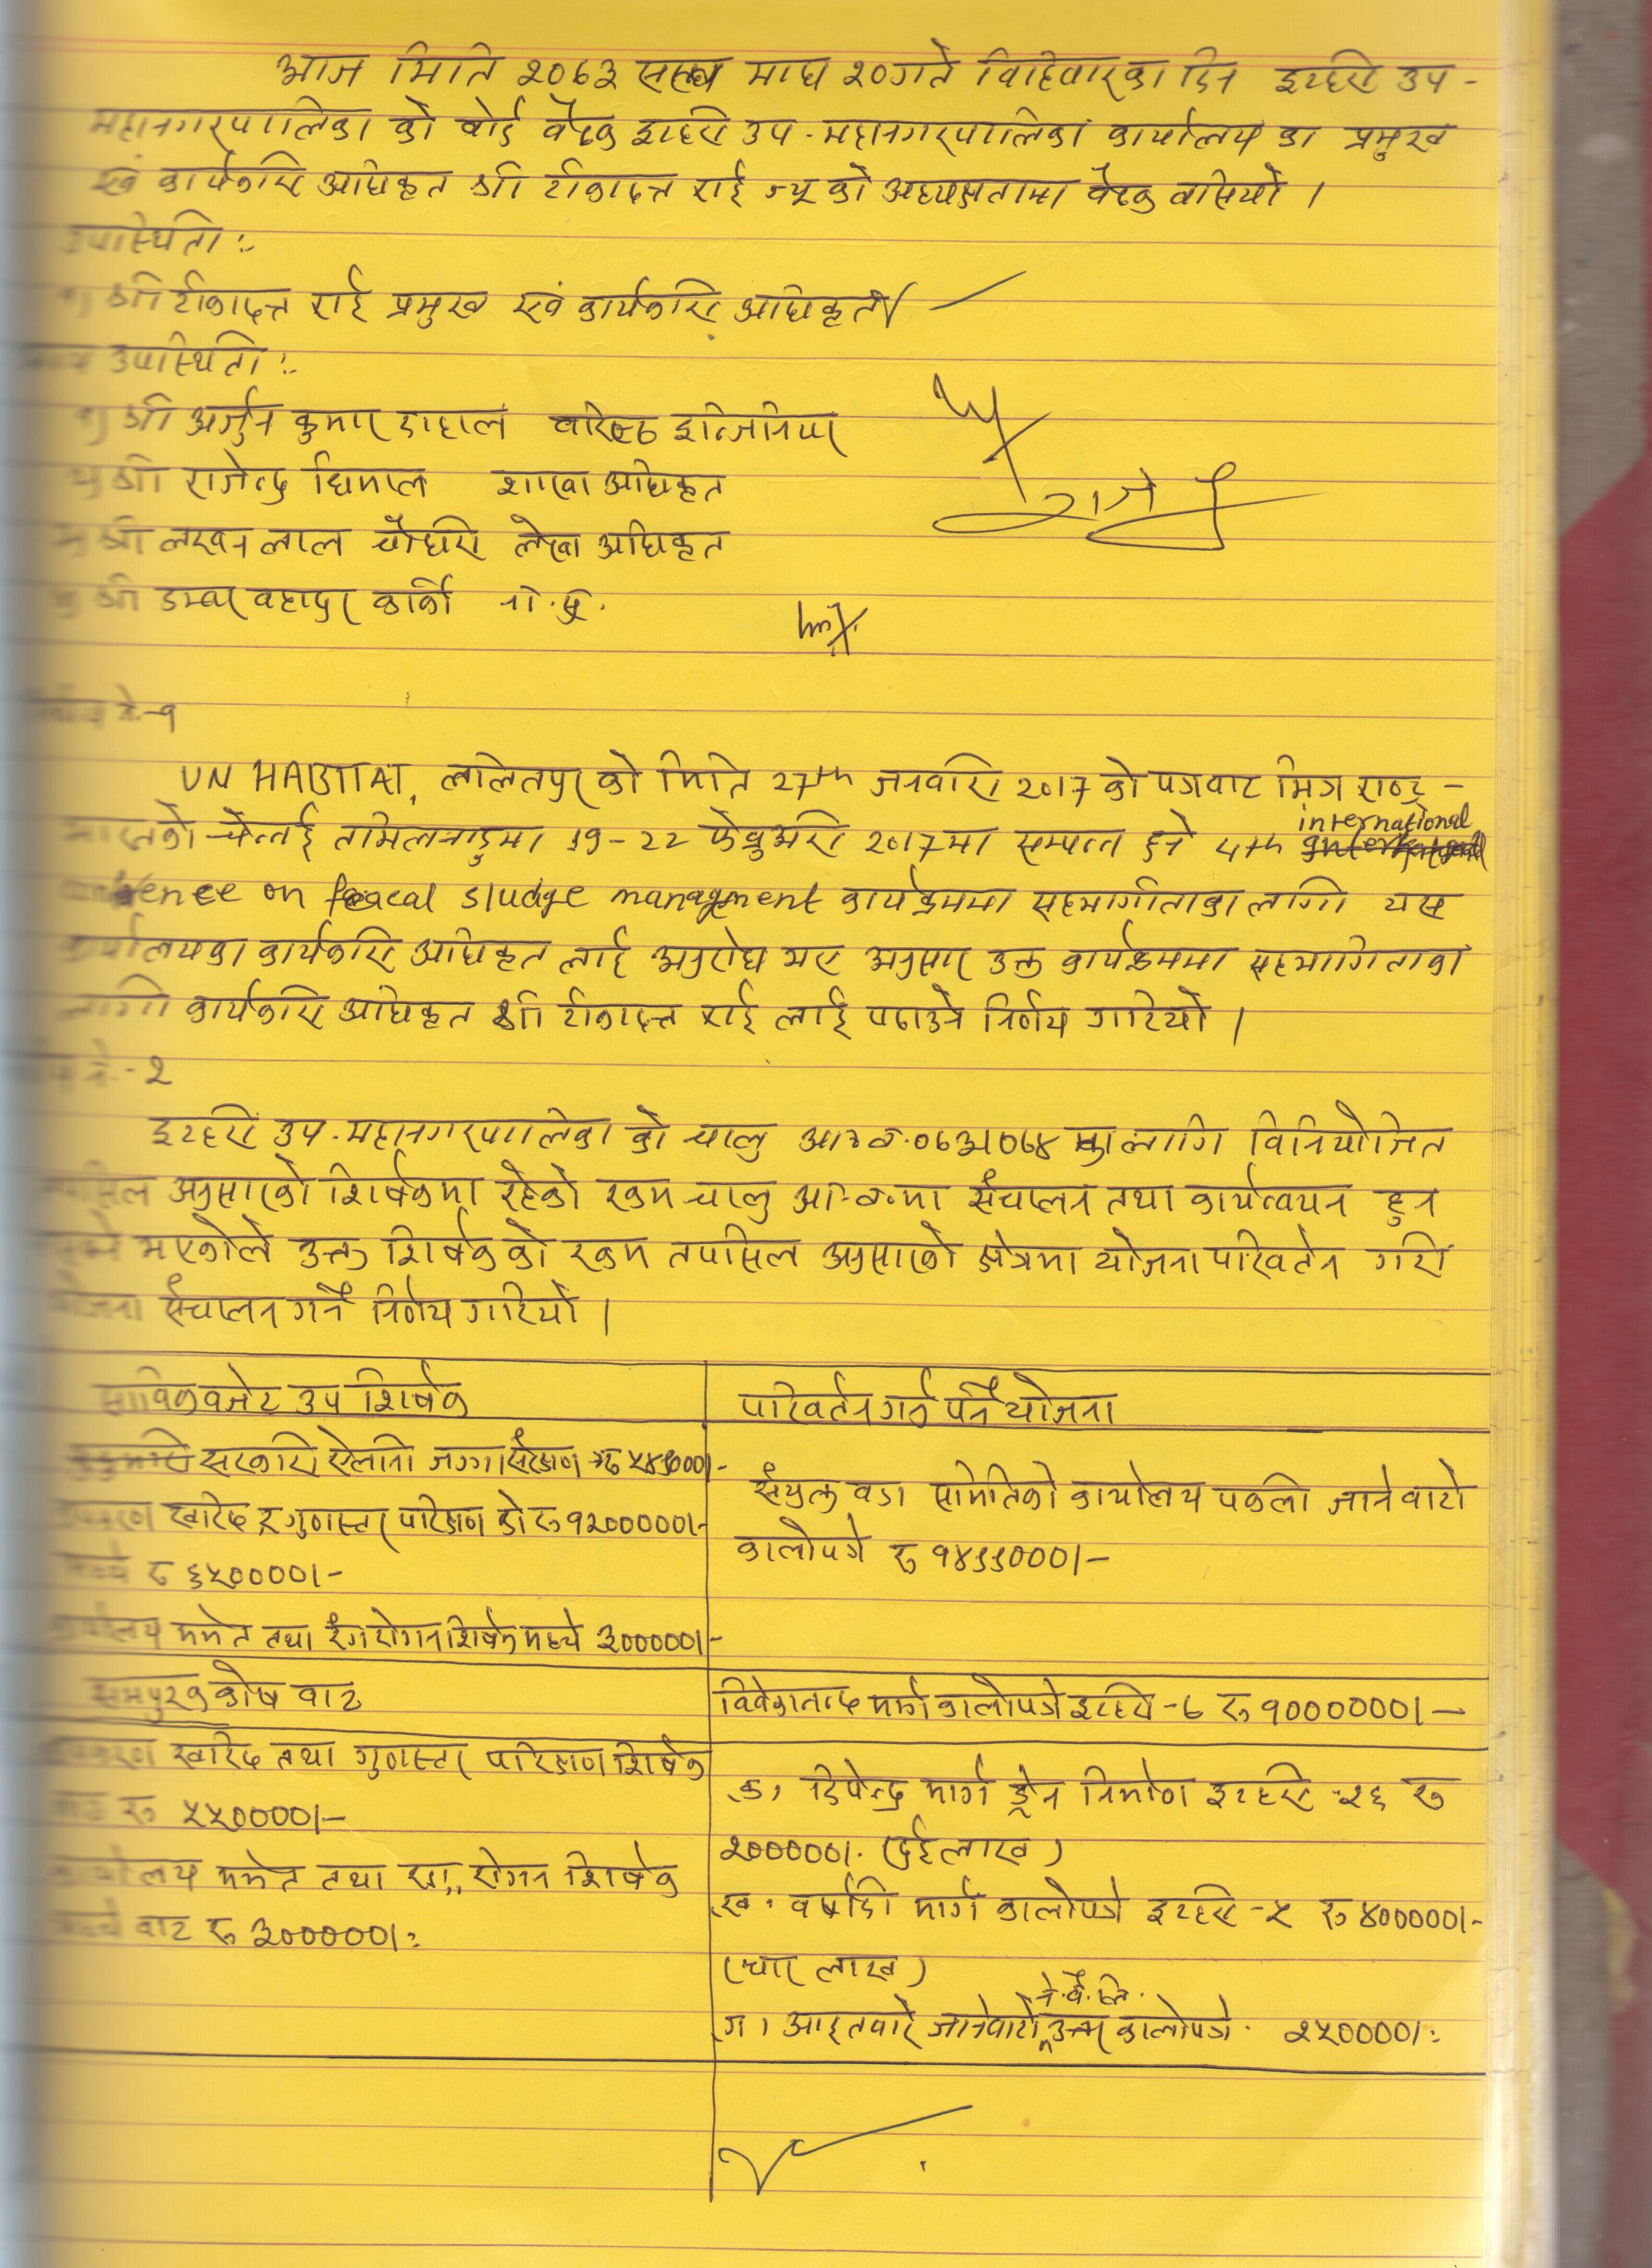 आज मिति २०७३ साल माघ २० गते विहिवारका दिन इटहरि उप-
महानगरपालिका को वोर्ड वैठक इटहरि उप-महानगरपालिका कार्यालय का प्रमुख
एवं कार्यकारि अधिकृत श्री टीकादत्त राई ज्यू को अध्यक्षतामा वैठक वसियो ।
उपस्थिती :-
१) श्री टीकादत्त राई प्रमुख एवं कार्यकारि अधिकृत
उपस्थिती :-
१) श्री अर्जुन कुमार दाहाल वरिष्ठ इन्जिनियर
श्री राजेन्द्र धिमाल शाखा अधिकृत
श्री लखन लाल चौधरि लेखा अधिकृत
श्री डम्वर वहादुर कार्की ना.सु.
राजेन्द्र
निर्णय नं-१
UN HABITAT, ललितपुर को मिति 27th जनवरि 2017 को पत्रवाट मित्र राष्ट्र-
भारतको चेन्नई तामिलनाडुमा 19-22 फेब्रुअरि 2017 मा सम्पन्न हुने 4th international
ence on feacal sludge management कार्यक्रममा सहभागीताका लागी यस
कार्यालयका कार्यकारि अधिकृत लाई अनुरोध भए अनुसार उक्त कार्यक्रममा सहभागिताका
लागी कार्यकारि अधिकृत श्री टीकादत्त राई लाई पठाउने निर्णय गरियो ।
नं.-२
इटहरि उप.महानगरपालिका को चालु आ.व.०७३/०७४ का लागि विनियोजित
तपसिल अनुसारको शिर्षकमा रहेको रकम चालु आ.व.मा संचालन तथा कार्यन्वयन हुन
नसक्ने भएकोले उक्त शिर्षक को रकम तपसिल अनुसारको क्षेत्रमा योजना परिवर्तन गरि
योजना संचालन गर्ने निर्णय गरियो ।
साविक वजेट उप शिर्षक
परिवर्तन गर्नु पर्ने योजना
सरकारि ऐलानी जग्गा संरक्षण रु
उपकरण खरिद र गुणस्तर परिक्षण को रु १२०००००।-
मध्ये रु ६५००००।-
कार्यालय मर्मत तथा रंगरोगन शिर्षक मध्ये ३०००००।-
संयुक्त वडा समितिको कार्यालय पक्ली जाने वाटो
कालोपत्रे रु
सम्पुरक कोष वाट
विवेकानन्द मार्ग कालोपत्रे इटहरि -८ रु १००००००।-
उपकरण खरिद तथा गुणस्तर परिक्षण शिर्षक
वाट रु ५५००००।-
कार्यालय मर्मत तथा रोगन शिर्षक
मध्ये वाट रु ३०००००।-
क) दिपेन्द्र मार्ग ड्रेन निर्माण इटहरि रु
२०००००।- (दुई लाख)
ख. मार्ग कालोपत्रे इटहरि -५ रु ४०००००।-
(चार लाख)
ने.वै.लि.
ग) आइतवारे जानेवाटो उत्तर कालोपत्रे २५००००।-